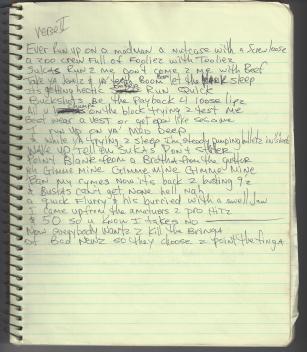 Verse II
Ever run up on a madman a nutcase with a screw loose
a zoo crew full of fooliez with tooliez
Sukas Runz me don't come 2 me with Beef
Take ya Jewlz & ya Boom let the sleep
Its getting hectic Run Quick
Buckshots Be the Payback 4 loose lipz
All u on the block trying 2 test me
Bost wear a vest or get open like sesame
I run up on ya' Mad Deep
While ya trying 2 sleep I'm steady pumping bulletz in
Wake up tell em Sukas Don't
Point Blank from a Brotha from the
Gimme Mine Gimme Mine Gimmie Mine
Ran my rymes now its back 2 busting 9z
& Bustas can't get None hell nah
a quick flurry & his burried with a
I came up from the amatures 2 pro Hitz
& 50 so u know I takes no
Now everybody wantz 2 kill the Bringa
of Bad Newz so they choose 2 point the finga